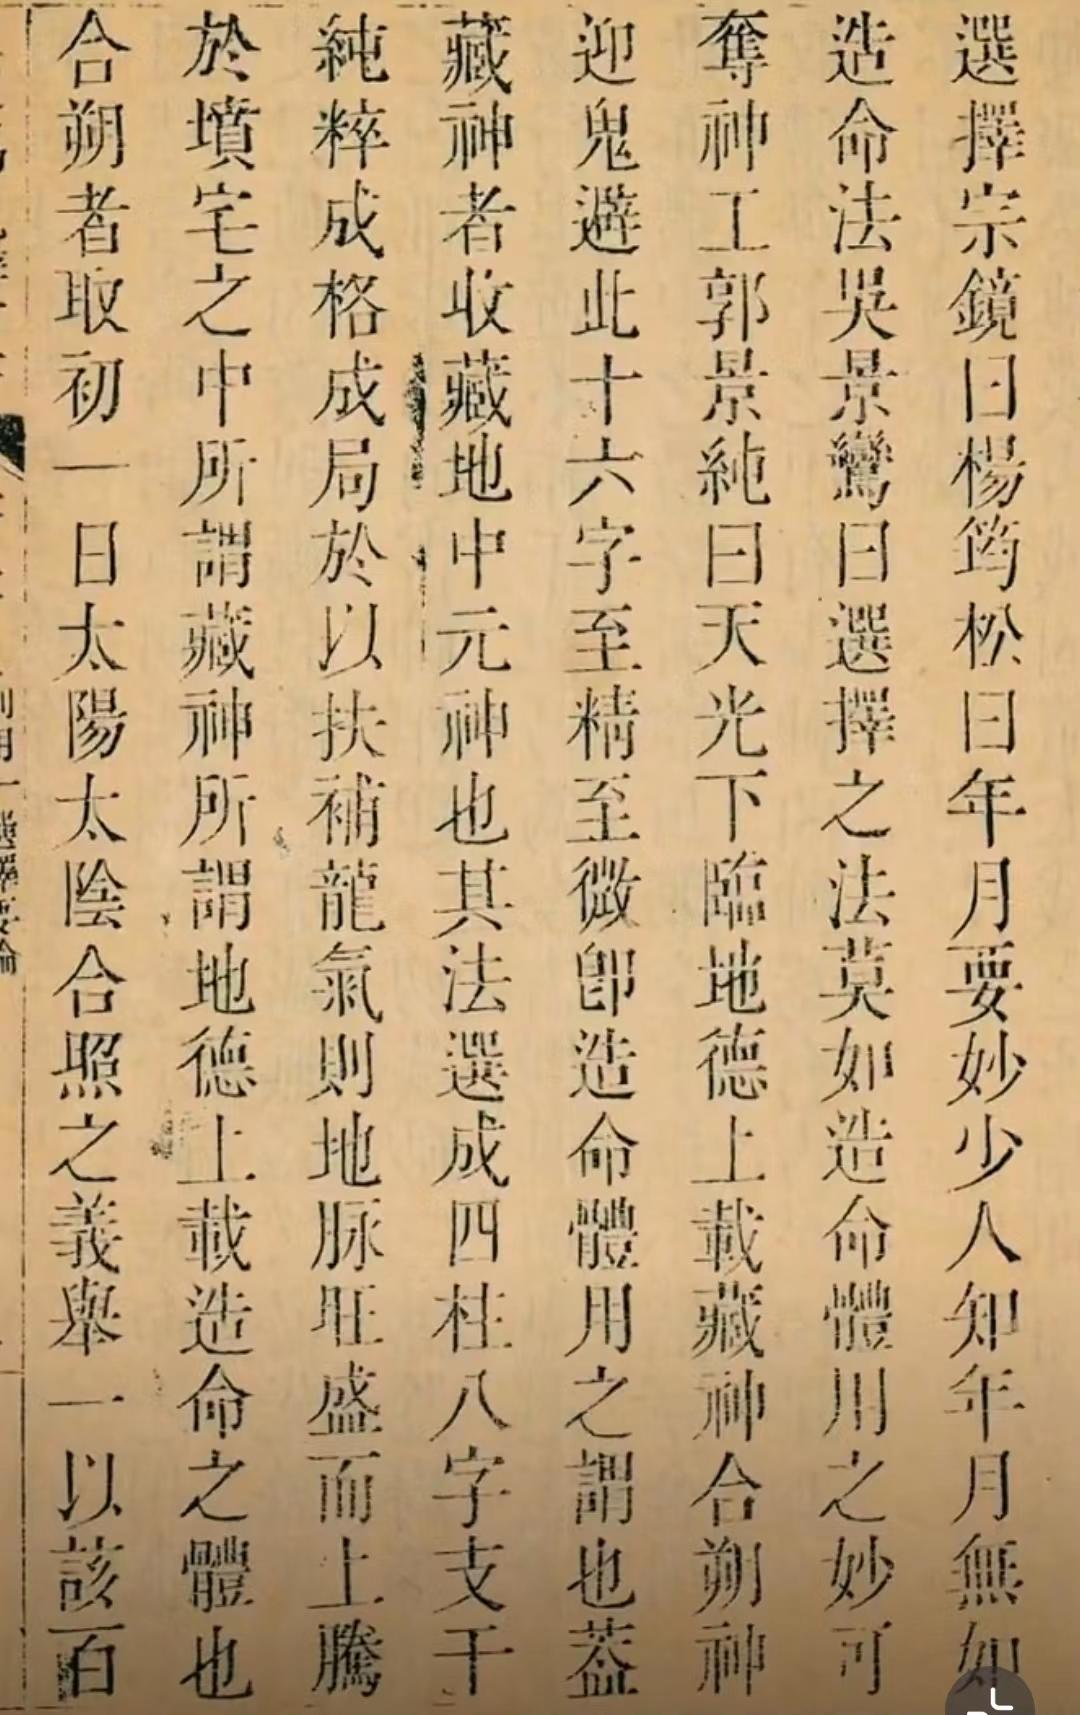 選擇宗鏡曰楊筠松曰年月要妙少人知年月無如
造命法吳景鸞曰選擇之法莫如造命體用之妙可
奪神工郭景純曰天光下臨地德上載藏神合朔神
迎鬼避此十六字至精至微卽造命體用之謂也葢
藏神者收藏地中元神也其法選成四柱八字支干
純粹成格成局於以扶補龍氣則地脉旺盛而上騰
於墳宅之中所謂藏神所謂地德上載造命之體也
合朔者取初一日太陽太陰合照之義舉一以該百
選擇要論